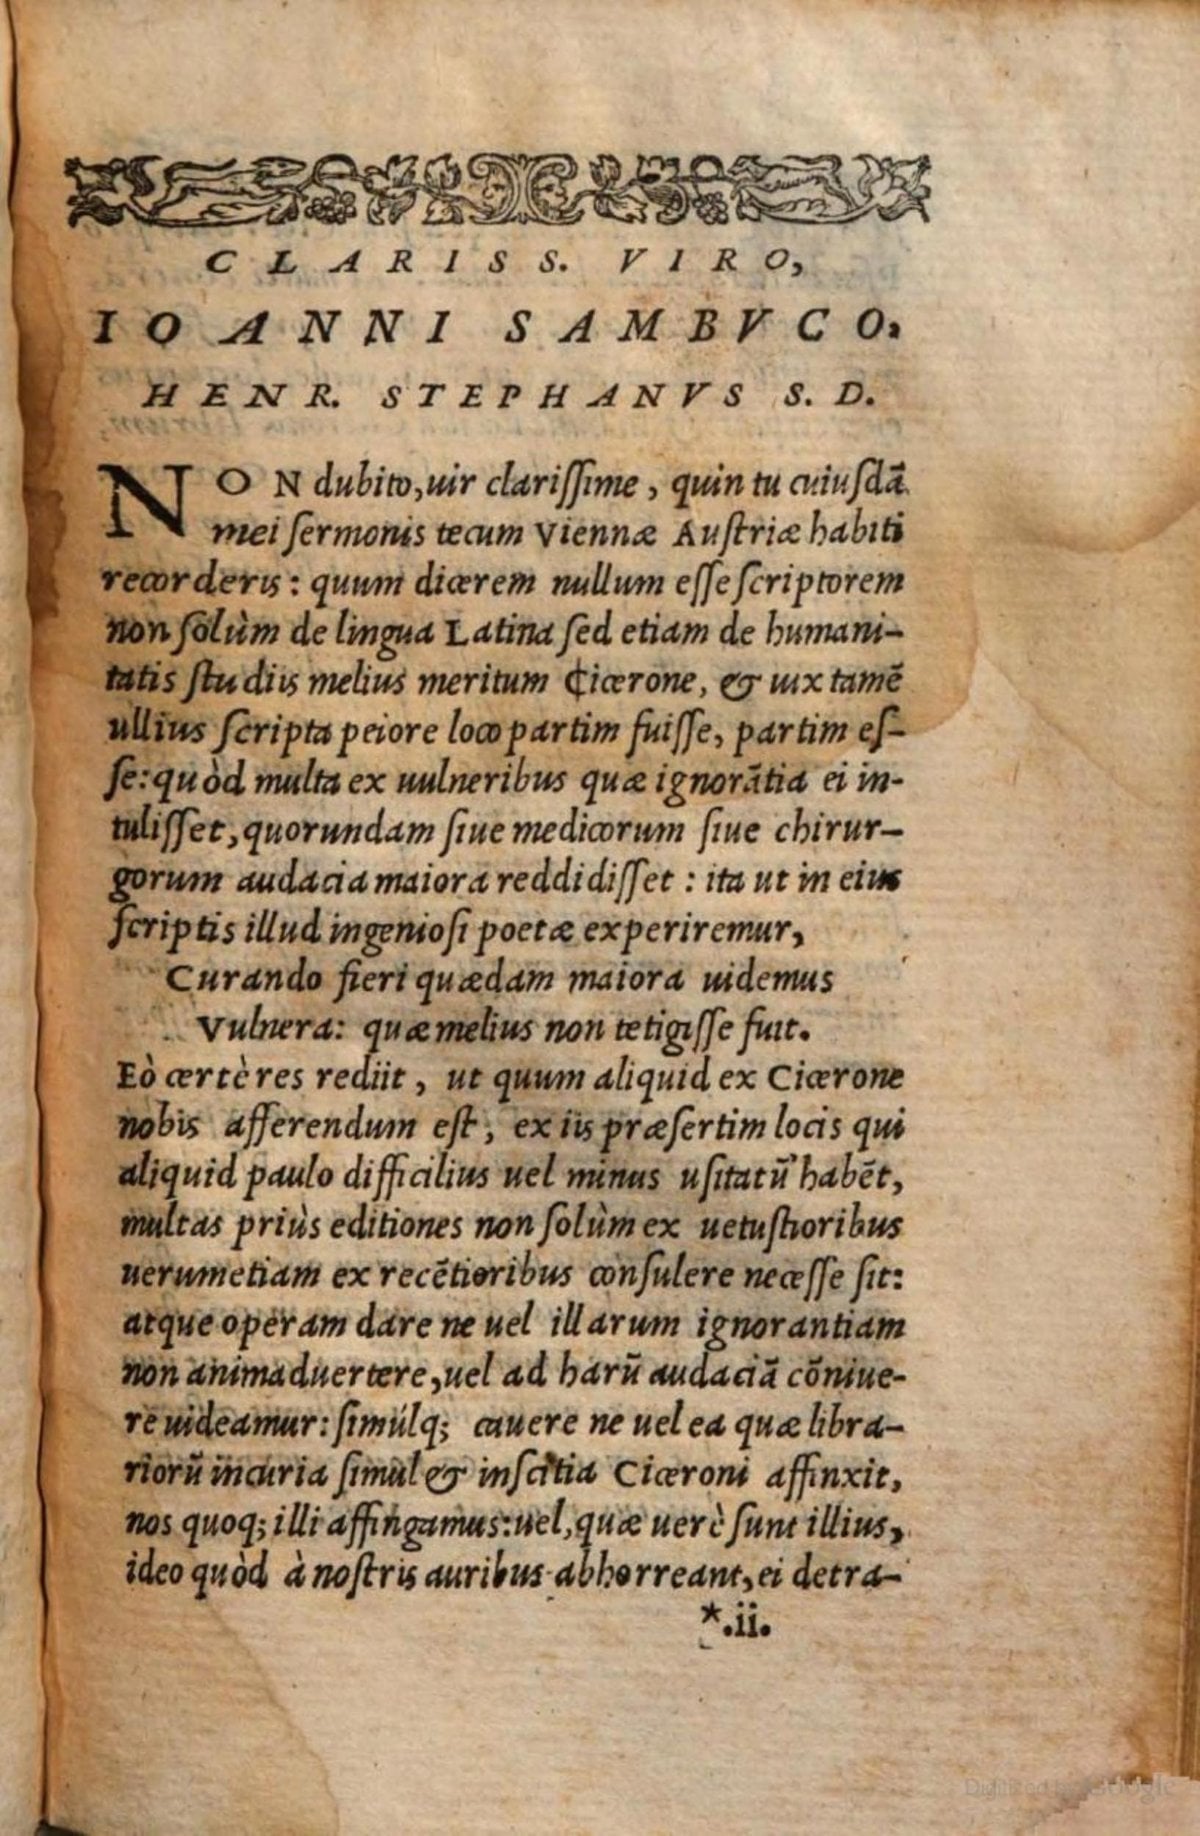 CLARISS. VIRO,
IOANNI SAMBVCO,
HENR. STEPHANVS S. D.
NON dubito, uir clarissime, quin tu cuiusdā
mei sermonis tecum Viennæ Austriæ habiti
recorderis: quum dicerem nullum esse scriptorem
non solùm de lingua Latina sed etiam de humani-
tatis studiis melius meritum Cicerone, & uix tamē
ullius scripta peiore loco partim fuisse, partim es-
se: quòd multa ex uulneribus quæ ignorātia ei in-
tulisset, quorundam siue medicorum siue chirur-
gorum audacia maiora reddidisset: ita ut in eius
scriptis illud ingeniosi poetæ experiremur,
Curando fieri quædam maiora uidemus
Vulnera: quæ melius non tetigisse fuit.
Eò certè res rediit, ut quum aliquid ex Cicerone
nobis afferendum est, ex iis præsertim locis qui
aliquid paulo difficilius uel minus usitatū habēt,
multas priùs editiones non solùm ex uetustioribus
uerumetiam ex recētioribus consulere necesse sit:
atque operam dare ne uel illarum ignorantiam
non animaduertere, uel ad harū audaciā cōniue-
re uideamur: simúlq; cauere ne uel ea quæ libra-
riorū incuria simul & inscitia Ciceroni affinxit,
nos quoq; illi affingamus: uel, quæ uerè sunt illius,
ideo quòd à nostris auribus abhorreant, ei detra-
*.ii.
Digitized by Google